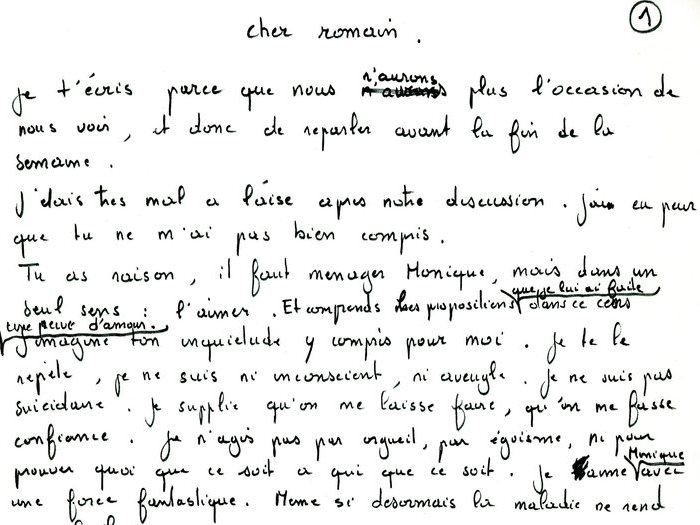 1
cher romain.
je t'écris parce que nous n'aurons plus l'occasion de
nous voir, et donc de reparler avant la fin de la
semaine.
j'étais tres mal a l'aise apres notre discussion. j'ai eu peur
que tu ne m'ai pas bien compris.
Tu as raison, il faut menager Monique, mais dans un
seul sens : l'aimer. Et comprends les propositions que je lui ai faite dans ce sens
une preuve d'amour.
j'imagine ton inquietude y compris pour moi. je te le
repète, je ne suis ni inconscient, ni aveugle. je ne suis pas
suicidaire. je supplie qu'on me laisse faire, qu'on me fasse
confiance. je n'agis pas par orgueil, par égoïsme, ni pour
prouver quoi que ce soit a qui que ce soit. je aime Monique avec
une force fantastique. Meme si desormais la maladie ne rend